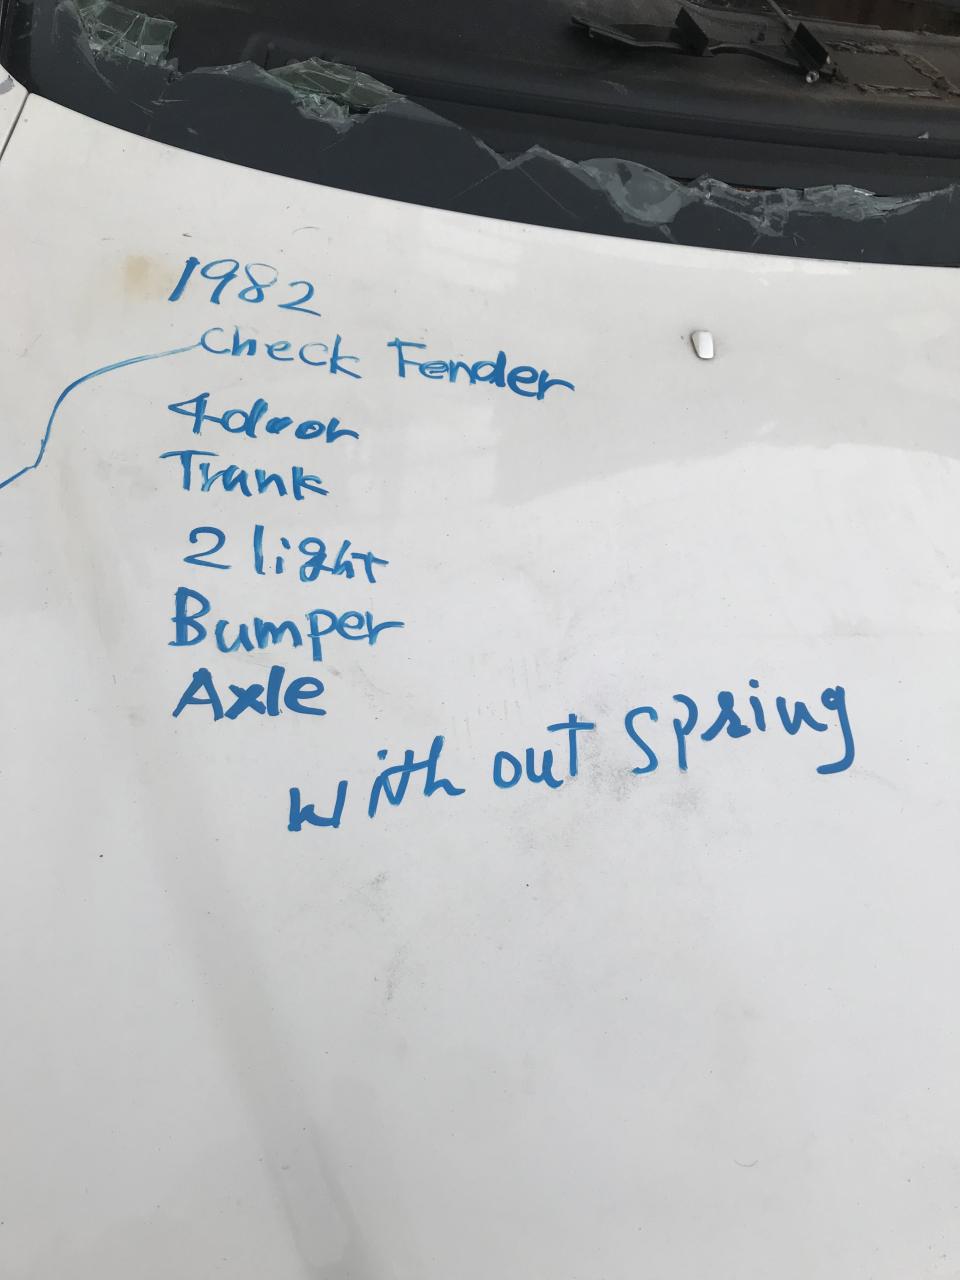 1982
Check Fender
4door
Trunk
2 light
Bumper
Axle
with out spring